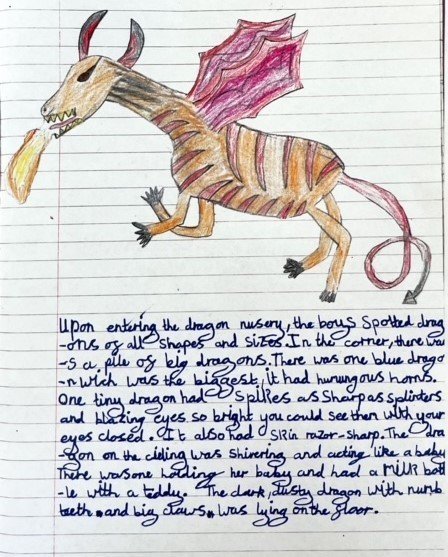 Upon entering the dragon nusery, the boys spotted drag
-ons of all shapes and sizes. In the corner, there wa
-s a pile of big dragons. There was one blue drago
-n wich was the biggest, it had hurungous horns.
One tiny dragon had spikes as sharp as splinters
and blazing eyes so bright you could see then with your
eyes closed. It also had skin razor-sharp. The dra
-gon on the cieling was shivering and acting like a baby
There was one holding her baby and had a milk bott
-le with a teddy. The dark, dusty dragon with numb
teeth and big claws was lying on the floor.